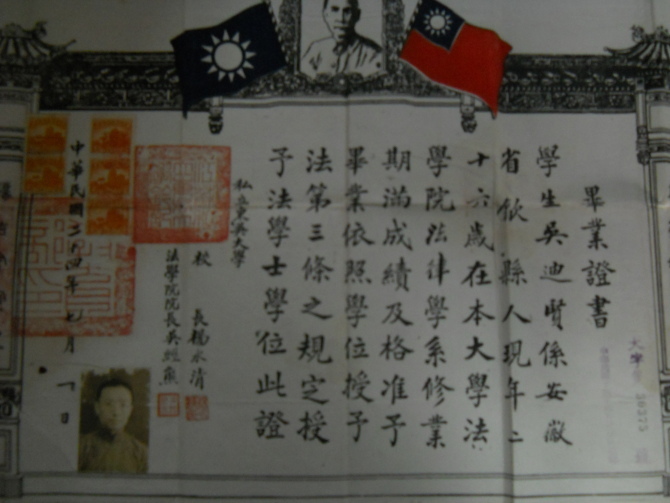 畢業證書
學生吳迪賢係安徽
省歙縣人現年二
十六歲在本大學法
學院法律學系修業
期滿成績及格准予
畢業依照學位授予
法第三條之規定授
予法學士學位此證
私立東吳大學
校長楊永清
法學院院長吳經熊
中華民國二十四年七月一日